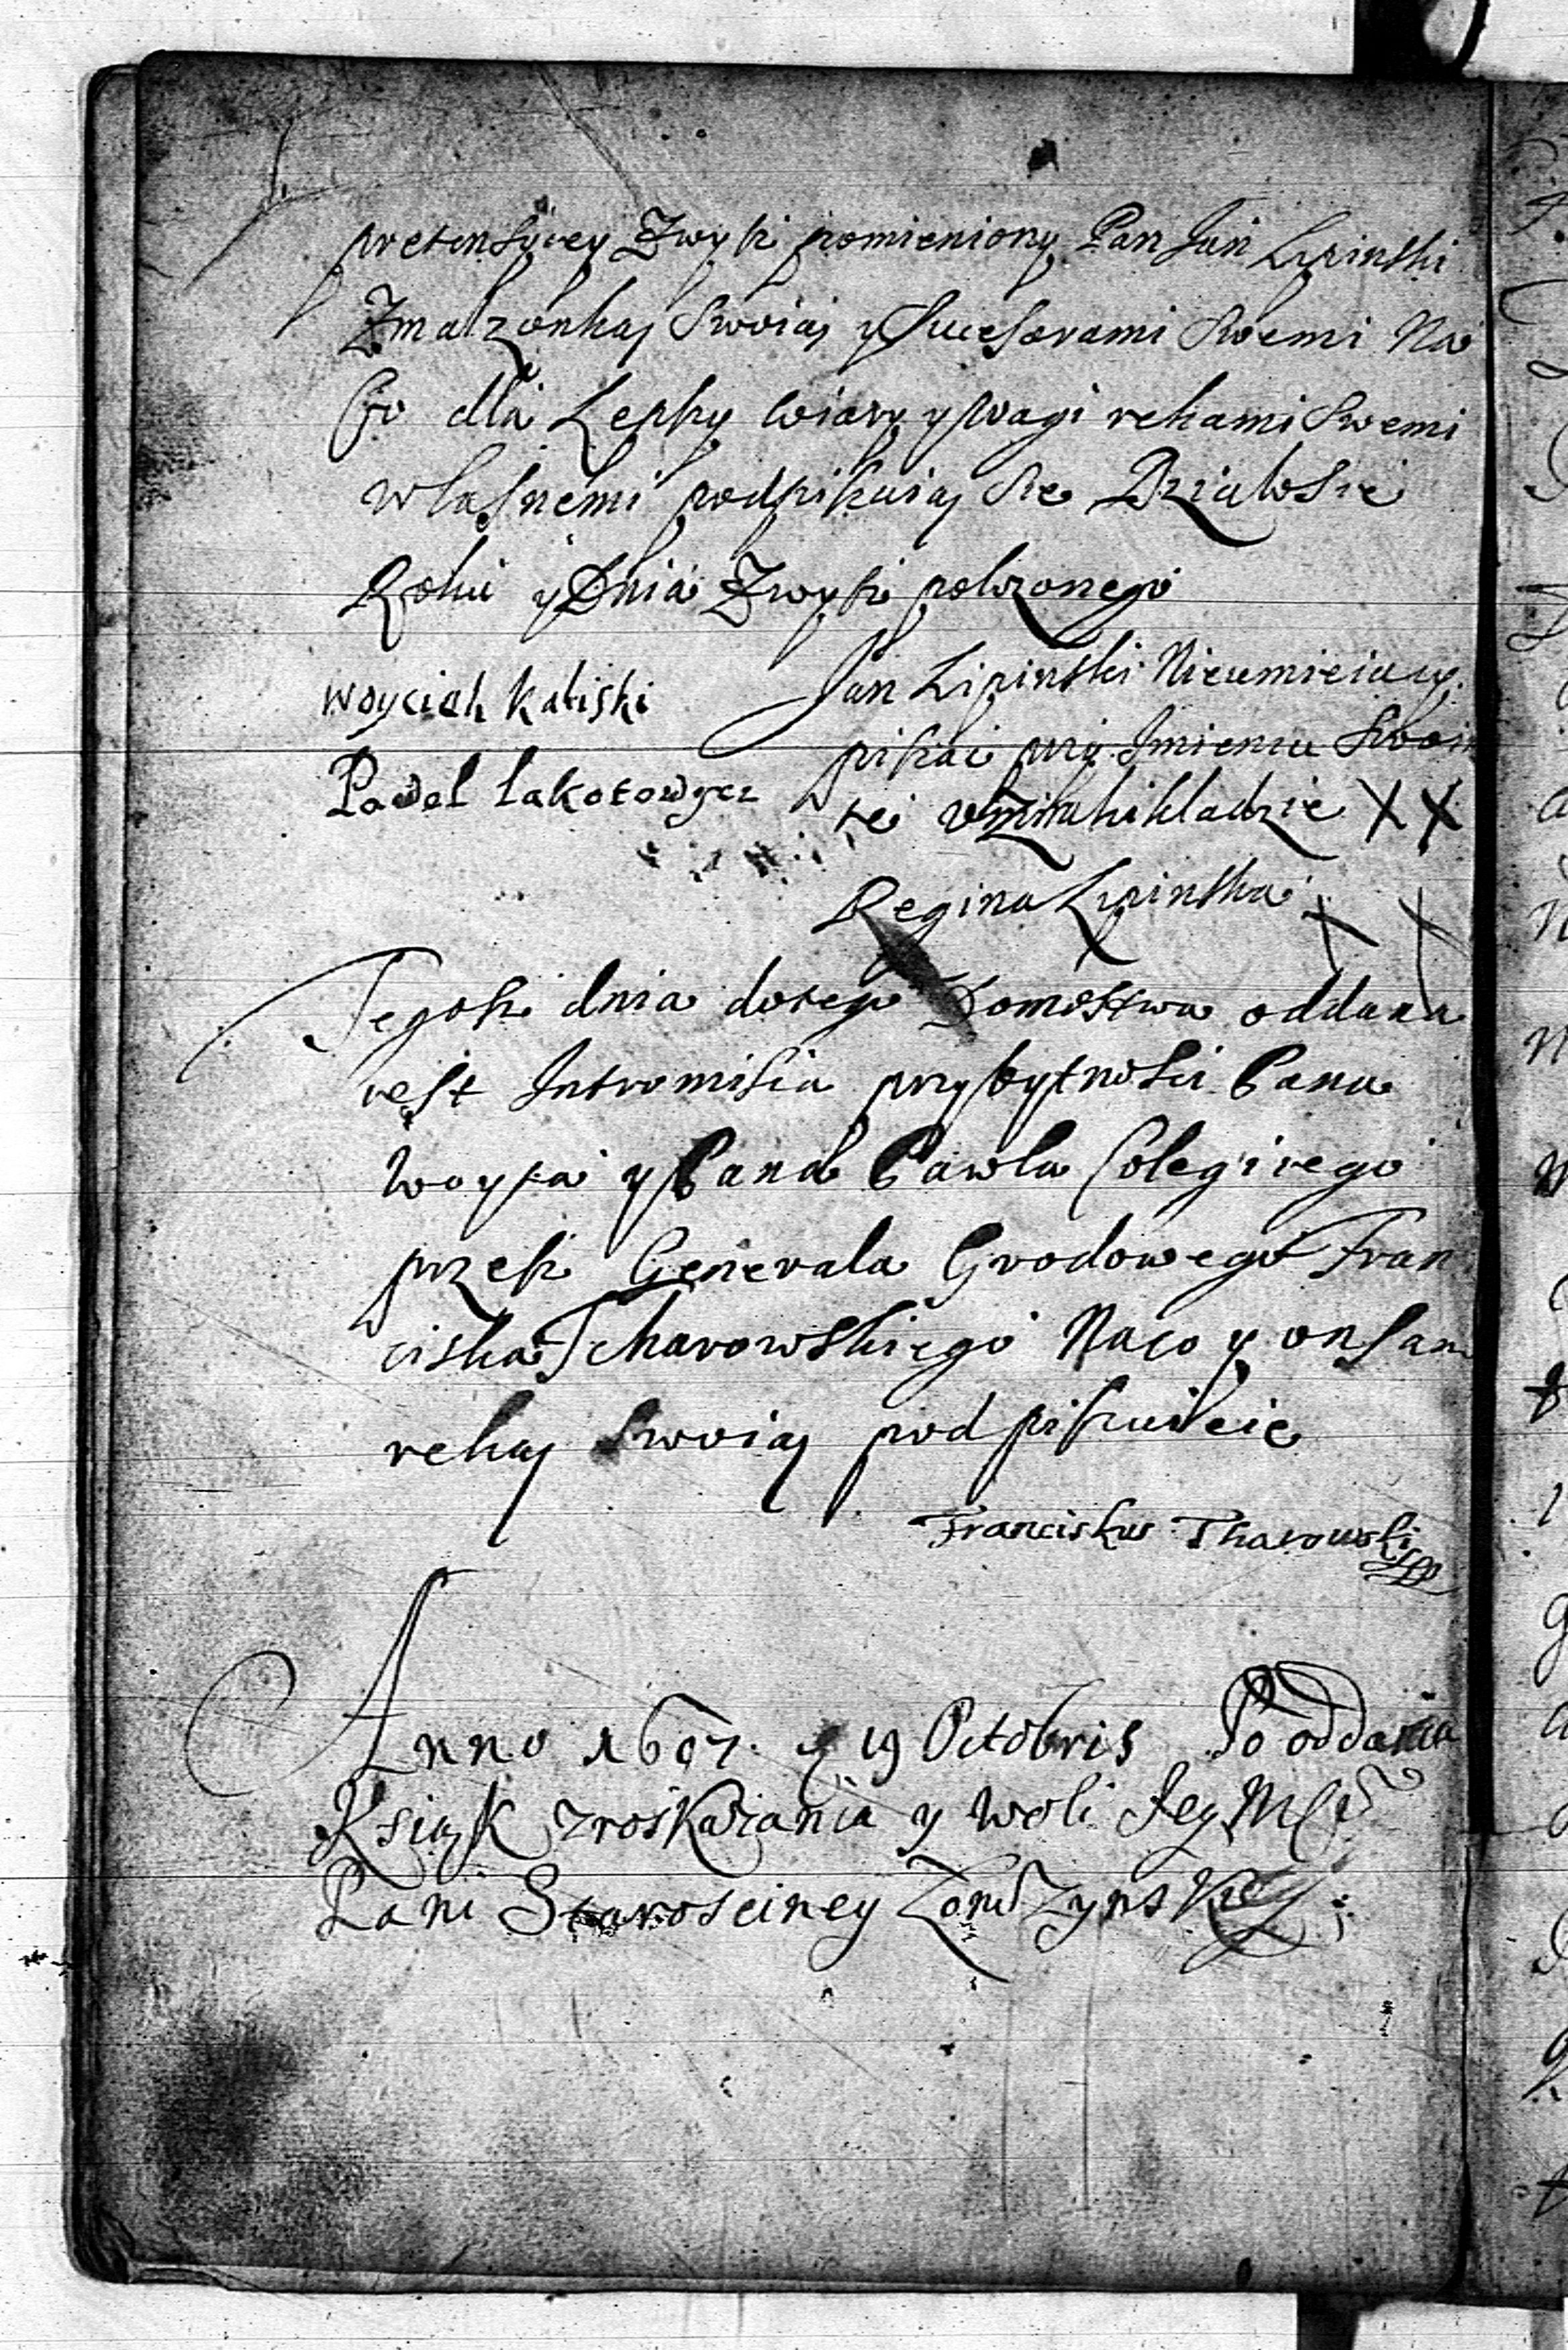 pretensyiey Zwysz pomieniony Pan Jan Lipinski
Zmalzonką Swoią y Sucesorami Swemi Na
Co dla Lepszy wiary y wagi rekami Swemi
własnemi podpisuią Sie Działosie
Roku y Dnia Zwysz polozonego
Jan Lipinski Nieumieiący
Woycieh Kaliski
pisać przy Imieniu Swoim
Pawel Łakotowycz
te kladzie X X
Regina Lipinska X X
Tegosz dnia dotego Domostwa oddana
iest Intromisia przybytnosci Pana
Woyta y Pana Pawla Colegi iego
przesz Generala Grodowego Fran
ciska Tcharowskiego Naco y on sam
reką Swoią podpisuiesie
Franciskus Tharowski
Anno 1697 19 Octobris Po oddania
Ksiąk zroskazania y woli Jey Mści
Pani Starosciney Łomżynskiey